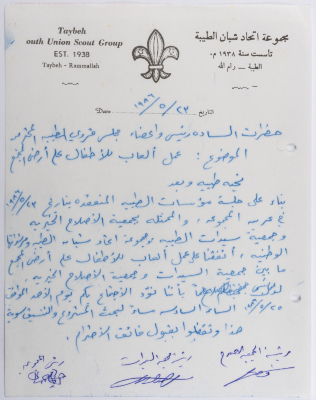 Taybeh
outh Union Scout Group
EST. 1938
Taybeh - Ramallah
مجموعة اتحاد شبان الطيبة
تأسست سنة ١٩٣٨ م.
الطيبة - رام الله
Date ١٩٨٦/٥/٢٣ تاريخ
حضرات الساده رئيس واعضاء مجلس قروي الطيبه المحترمين
الموضوع : عمل ألعاب للأطفال على أرض المجمع
تحيه طيبه وبعد
بناء على جلسة مؤسسات الطيبه المنعقده بتاريخ
في عرين المجموعه ، والممثله بجمعية الاصلاح الخيريه
وجمعية سيدات الطيبه ومجموعة اتحاد شبان الطيبه
اتفقنا على عمل ألعاب للأطفال على أرض المجمع
ما بين جمعية السيدات وجمعية الاصلاح الخيريه
بأننا نود الاجتماع بكم يوم الأحد الموافق
٥/٢٥ الساعه السادسه مساء لبحث المشروع والتنسيق سوية
هذا وتفضلوا بقبول فائق الاحترام
رئيسة جمعية السيدات